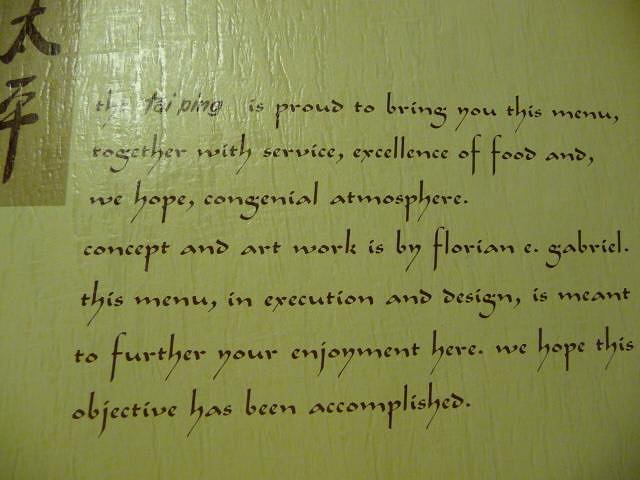 太平
the tai ping is proud to bring you this menu,
together with service, excellence of food and,
we hope, congenial atmosphere.
concept and art work is by florian e. gabriel.
this menu, in execution and design, is meant
to further your enjoyment here. we hope this
objective has been accomplished.